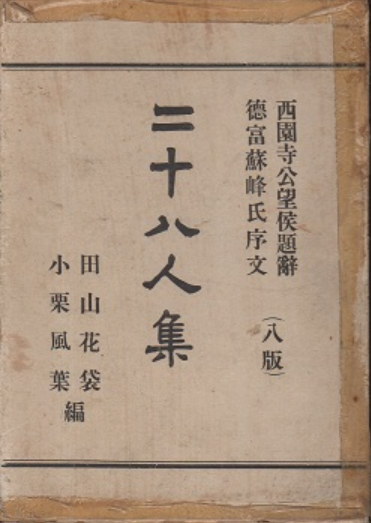 西園寺公望侯題辭
德富蘇峰氏序文
(八版)
二十八人集
田山花袋
小栗風葉
編